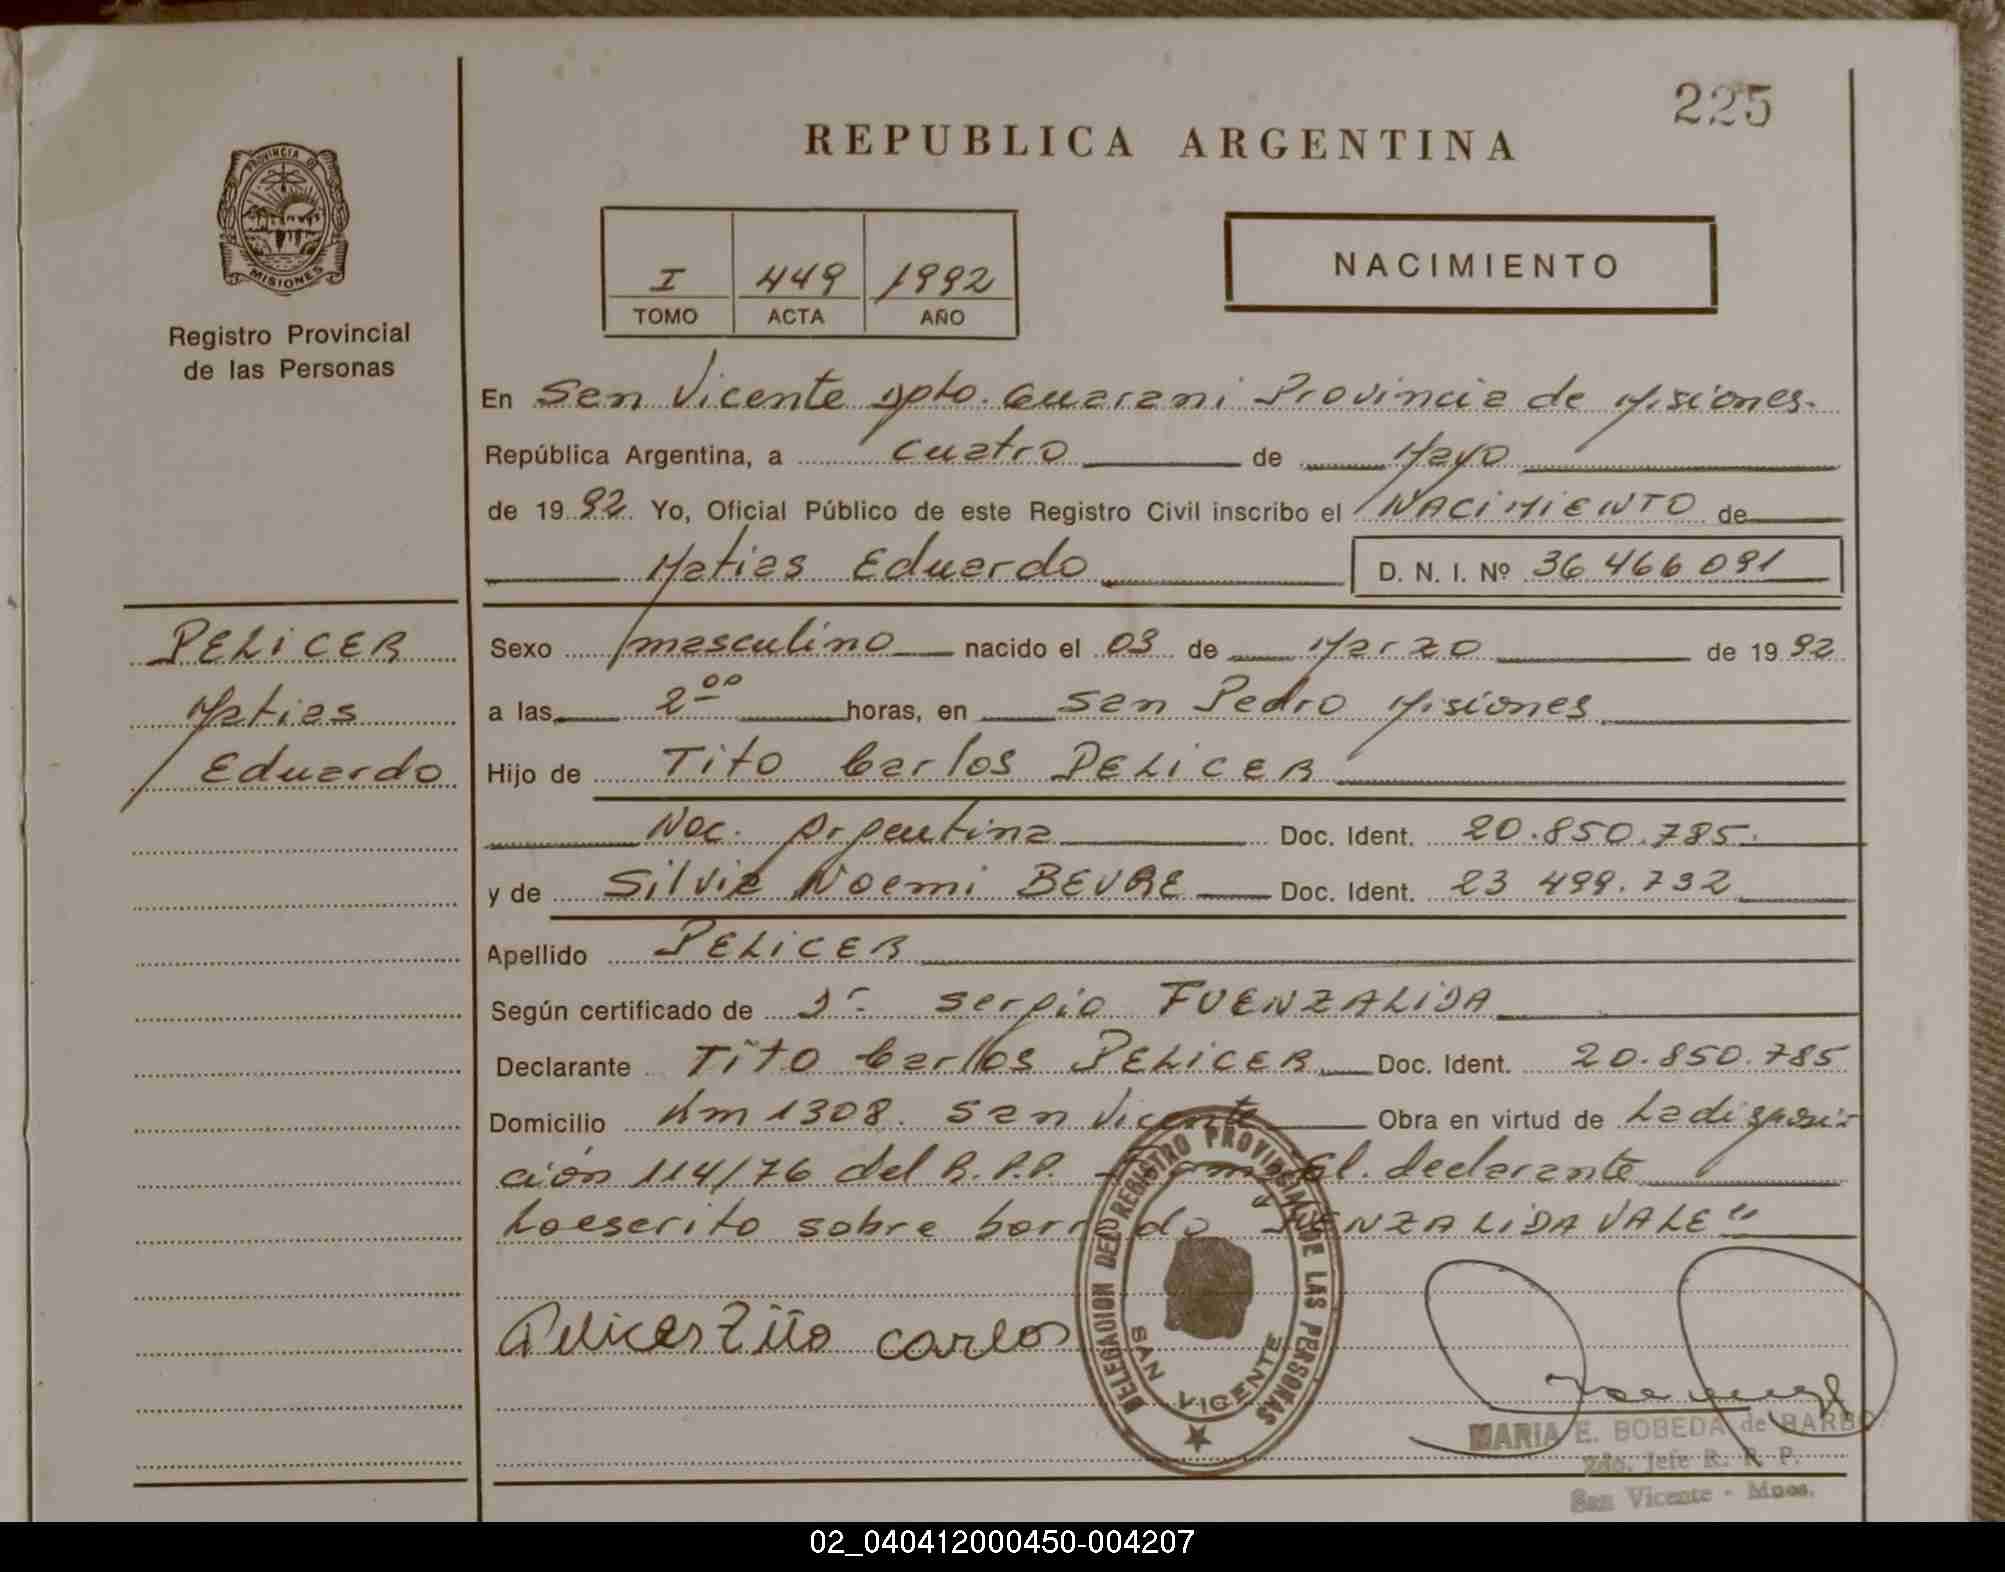 225
REPUBLICA ARGENTINA
PROVINCIA D
MISIONES
Registro Provincial
de las Personas
I 449 1992
TOMO ACTA AÑO
NACIMIENTO
En San Vicente Dpto. Guarani Provincia de Misiones.
República Argentina, a cuatro de Mayo
de 1992. Yo, Oficial Público de este Registro Civil inscribo el NACIMIENTO de
Matias Eduardo D. N. I. Nº 36 466 091
PELICER
Matias
Eduardo
Sexo masculino nacido el 03 de Marzo de 1992
a las 2ºº horas, en San Pedro Misiones
Hijo de Tito Carlos PELICER
Nac. Argentina Doc. Ident. 20.850.785.
y de Silvia Noemi BEVRE Doc. Ident. 23 499.732
Apellido PELICER
Según certificado de Dr. Sergio FUENZALIDA
Declarante Tito Carlos PELICER Doc. Ident. 20.850.785
Domicilio Km 1308. San Vicente Obra en virtud de La disposi-
ción 114/76 del R.P.P. el declarante
Lo escrito sobre borrado FUENZALIDA VALE"
Pelicer Tito Carlos
DELEGACION DEL REGISTRO PROVINCIAL DE LAS PERSONAS
SAN VICENTE
MARIA E. BOBEDA de BARBO
2do. Jefe R. P. P.
San Vicente - Mnes.
02_040412000450-004207